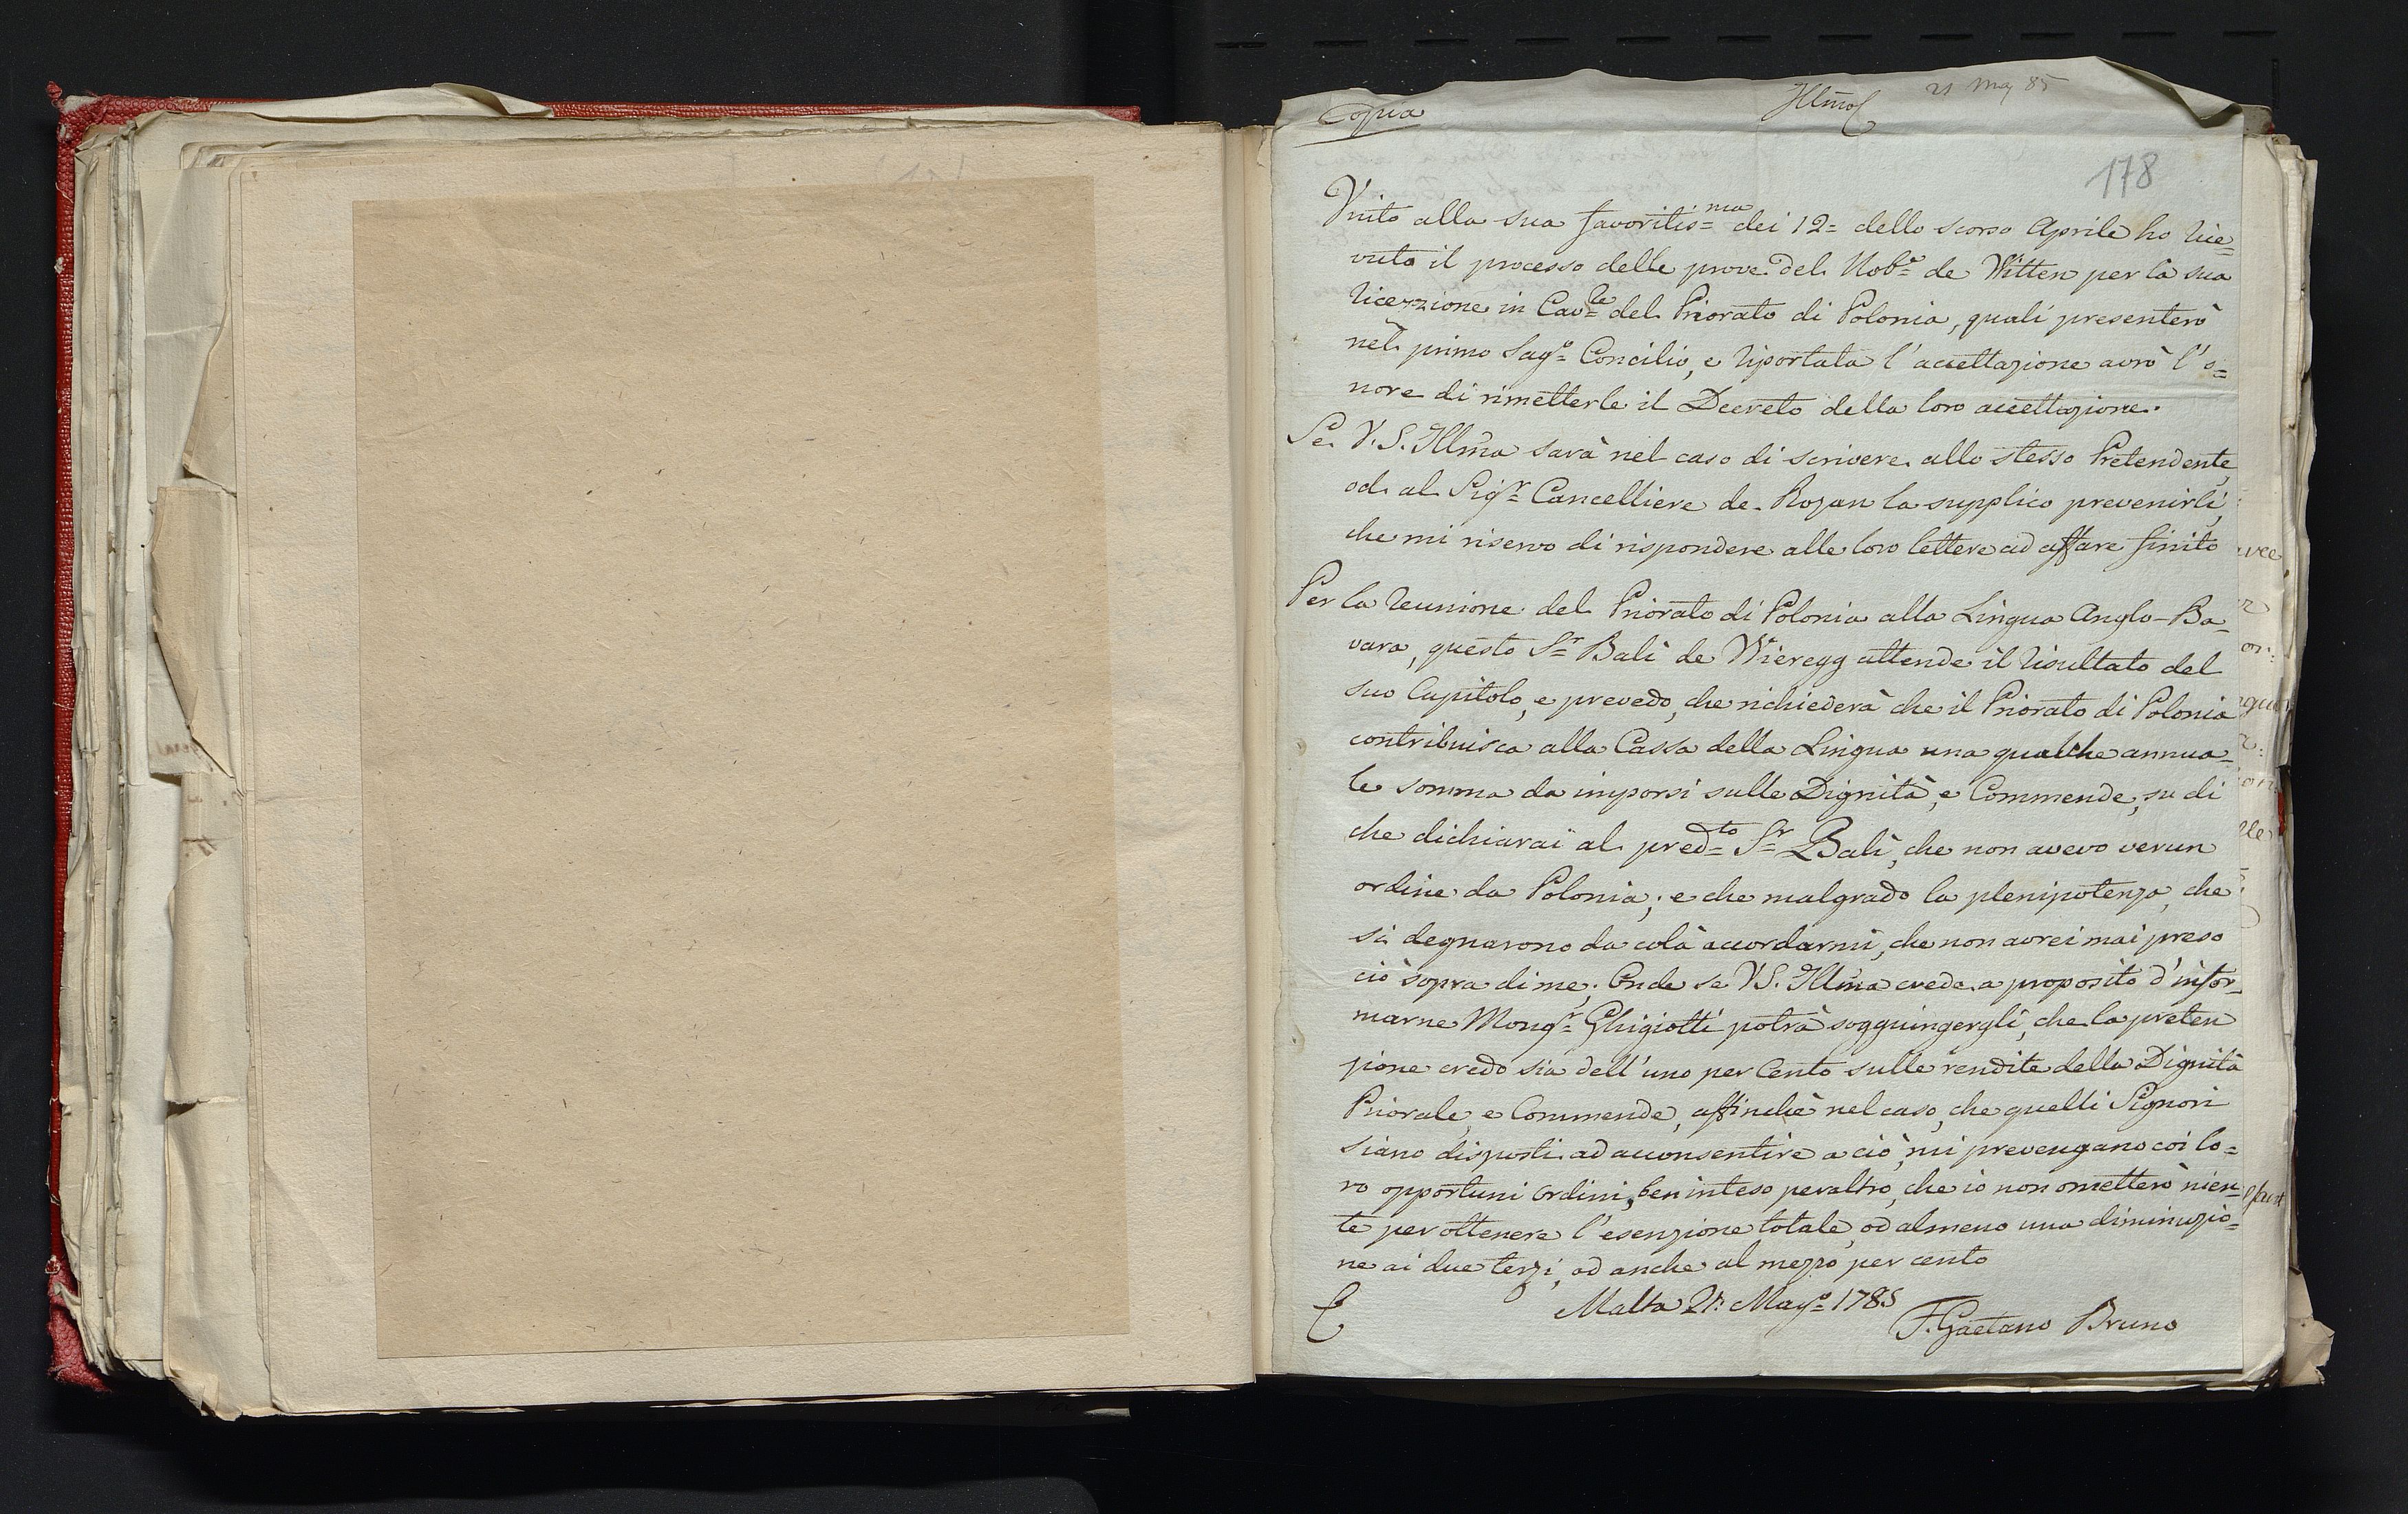 Copia
Illmo
21 May 85
178
Unito alla sua favoritis=ma dei 12= dello scorso Aprile ho rice=
vuto il processo delle prove del Nob.e de Witten per la sua
ricezzione in Cav=re del Priorato di Polonia, quali presenterò
nel primo Sag=o Concilio, e riportata l'accettazione avrò l'o=
nore di rimetterle il Decreto della loro accettazione.
Se V. S. Illma sarà nel caso di scrivere allo stesso Pretendente,
od al Sig=r Cancelliere de Rozan la supplico prevenirli,
che mi riservo di rispondere alle loro lettere ad affare finito
Per la reunione del Priorato di Polonia alla Lingua Anglo-Ba=
vara, questo S=r Balì de Vieregg attende il risultato del
suo Capitolo, e prevedo, che richiederà che il Priorato di Polonia
contribuisca alla Cassa della Lingua una qualche annua=
le somma da imporsi sulle Dignità, e Commende, su di
che dichiarai al pred=to S=r Balì, che non avevo verun
ordine da Polonia; e che malgrado la plenipotenza, che
si degnarono da colà accordarmi, che non avrei mai preso
ciò sopra di me. Onde se V.S. Illma crede a proposito d'infor=
marne Mong=r Ghigiotti potrà sogguingergli, che la preten
zione credo sia dell'uno per Cento sulle rendite della Dignità
Priorale, e Commende, affinchè nel caso, che quelli Signori
siano disposti ad acconsentire a ciò, mi prevengano coi lo=
ro opportuni ordini, ben inteso peraltro, che io non ometterò nien=
te per ottenere l'esenzione totale, od almeno una diminuzio=
ne ai due terzi, od anche al mezzo per cento
Malta 21 Mag=o 1785
F. Gaetano Bruno